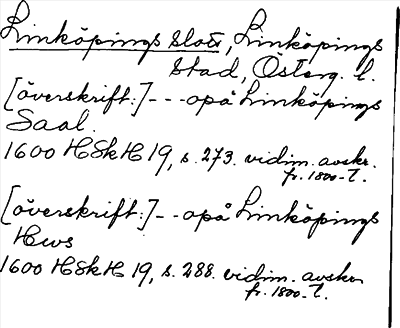 Linköpings slott, Linköpings
stad, Österg. l.
[överskrift:]---opå Linköpings
Saal.
1600 HSkH 19, s. 273. vidim. avskr.
fr. 1800-t.
[överskrift:]--opå Linköpings
Hws
1600 HSkH 19, s. 288. vidim. avskr
fr. 1800-t.